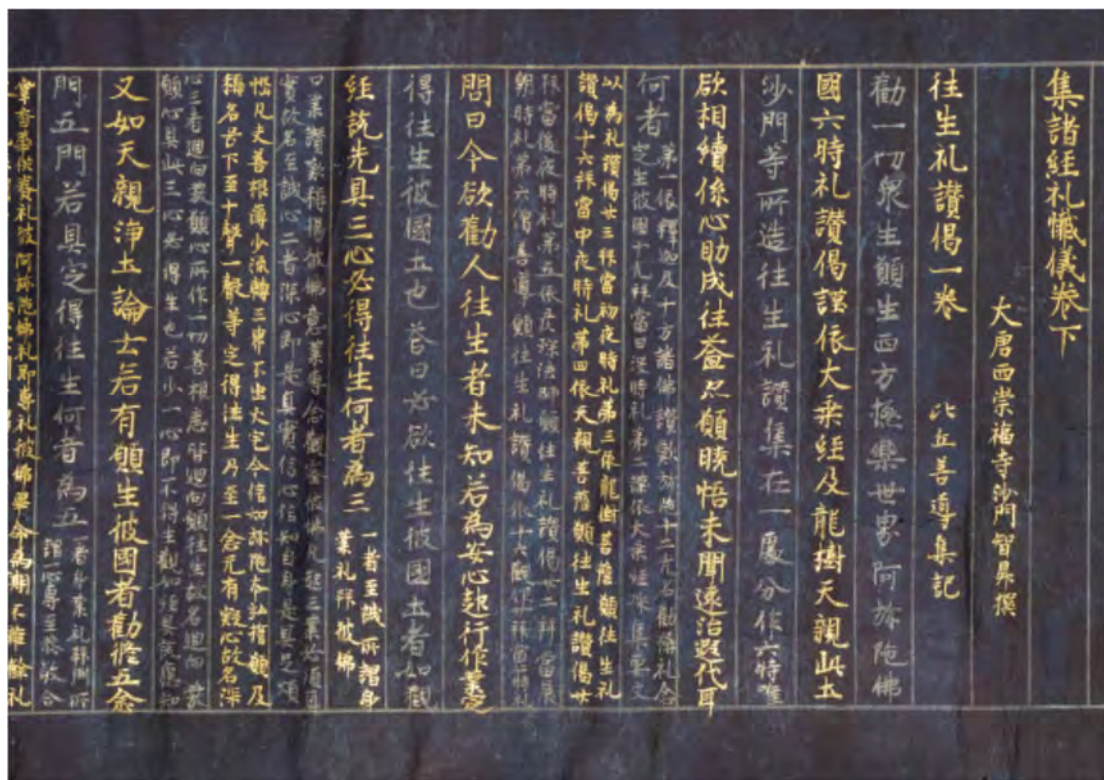 集諸經礼懺儀卷下
大唐西崇福寺沙門智昇撰
往生礼讚偈一卷 比丘善導集記
勸一切衆生願生西方極樂世界阿弥陀佛
國六時礼讚偈謹依大乘經及龍樹天親此土
沙門等所造往生礼讚集在一處分作六時唯
欲相續係心助成往益亦願曉悟未聞遠沾遐代耳
何者 第一依釋迦及十方諸佛讚歎弥陀十二光名勸稱礼念
定生彼國十九拜當日没時礼第二謹依大乘經採集要文
以為礼讚偈廿三拜當初夜時礼第三依龍樹菩薩願往生礼
讚偈十六拜當中夜時礼第四依天親菩薩願往生礼讚偈廿
拜當後夜時礼第五依彦琮法師願往生礼讚偈廿二拜當晨
朝時礼第六沙門善導願往生礼讚偈依十六觀廿拜當午時礼
問曰今欲勸人往生者未知若為安心起行作業定
得往生彼國土也荅曰必欲往生彼國土者如觀
經說先具三心必得往生何者為三 一者至誠所謂身
業礼拜彼佛
口業讚歎稱揚彼佛意業專念觀察彼佛凡起三業必須真
實故名至誠心二者深心即是真實信心信知自身是具足煩
惱凡夫善根薄少流轉三界不出火宅今信知弥陀本弘誓願及
稱名号下至十聲一聲等定得往生乃至一念无有疑心故名深
心三者迴向發願心所作一切善根悉皆迴向願往生故名迴向發
願心具此三心必得生也若少一心即不得生觀如經具說應知
又如天親淨土論云若有願生彼國者勸脩五念
門五門若具定得往生何者為五 一者身業礼拜門所
謂一心專至恭敬合
掌香華供養礼彼阿弥陀佛礼即專礼彼佛畢命為期不雜餘礼